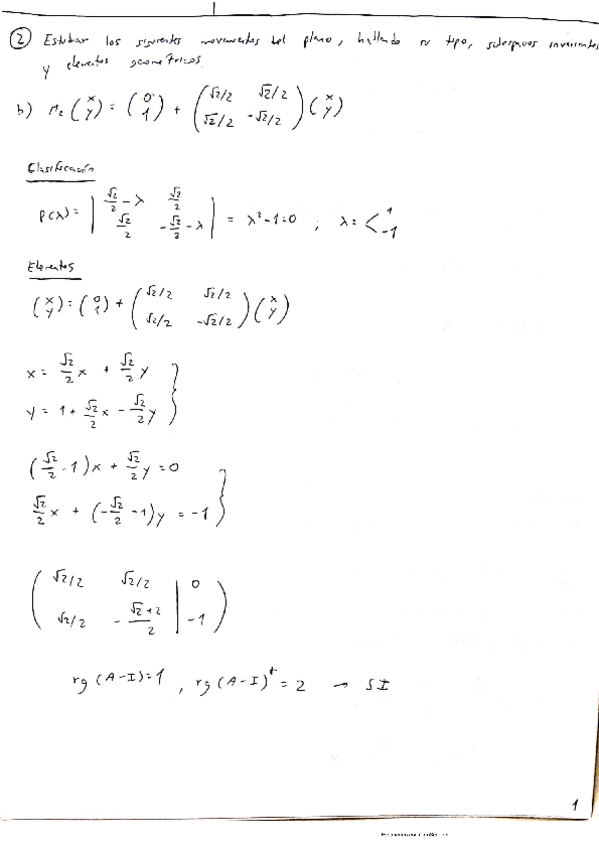 ② Estudiar los siguientes movimientos del plano, hallando su tipo, subespacios invariantes
y elementos geométricos.
b) M₂ (x y) = (0 1) + (√2/2 √2/2 √2/2 -√2/2) (x y)
Clasificación
P(λ) = | √2/2 - λ √2/2 √2/2 -√2/2 - λ | = λ² - 1 = 0 ; λ = < 1 -1
Elementos
(x y) = (0 1) + (√2/2 √2/2 √2/2 -√2/2) (x y)
x = √2/2 x + √2/2 y
y = 1 + √2/2 x - √2/2 y }
(√2/2 - 1)x + √2/2 y = 0
√2/2 x + (-√2/2 - 1)y = -1 }
( √2/2 √2/2 | 0
√2/2 - √2+2/2 | -1 )
rg (A-I) = 1 , rg (A-I)⁺ = 2 → SI
1